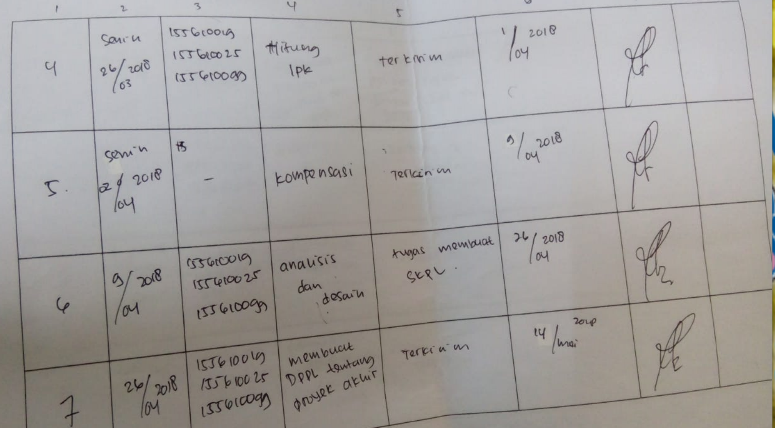 1 2 3 4 5
4
Senin
26/2018
03
155610019
155610025
155610099
Hitung
IPK
Terkirim
1/2018
04
5.
Senin
02/2018
04
-
kompensasi
Terkirim
9/2018
04
6
9/2018
04
155610019
155610025
155610099
analisis
dan
desain
tugas membuat
SKPL
26/2018
04
7
26/2018
04
155610019
155610025
155610099
membuat
DPPL tentang
proyek akhir
Terkirim
14/2018
mei